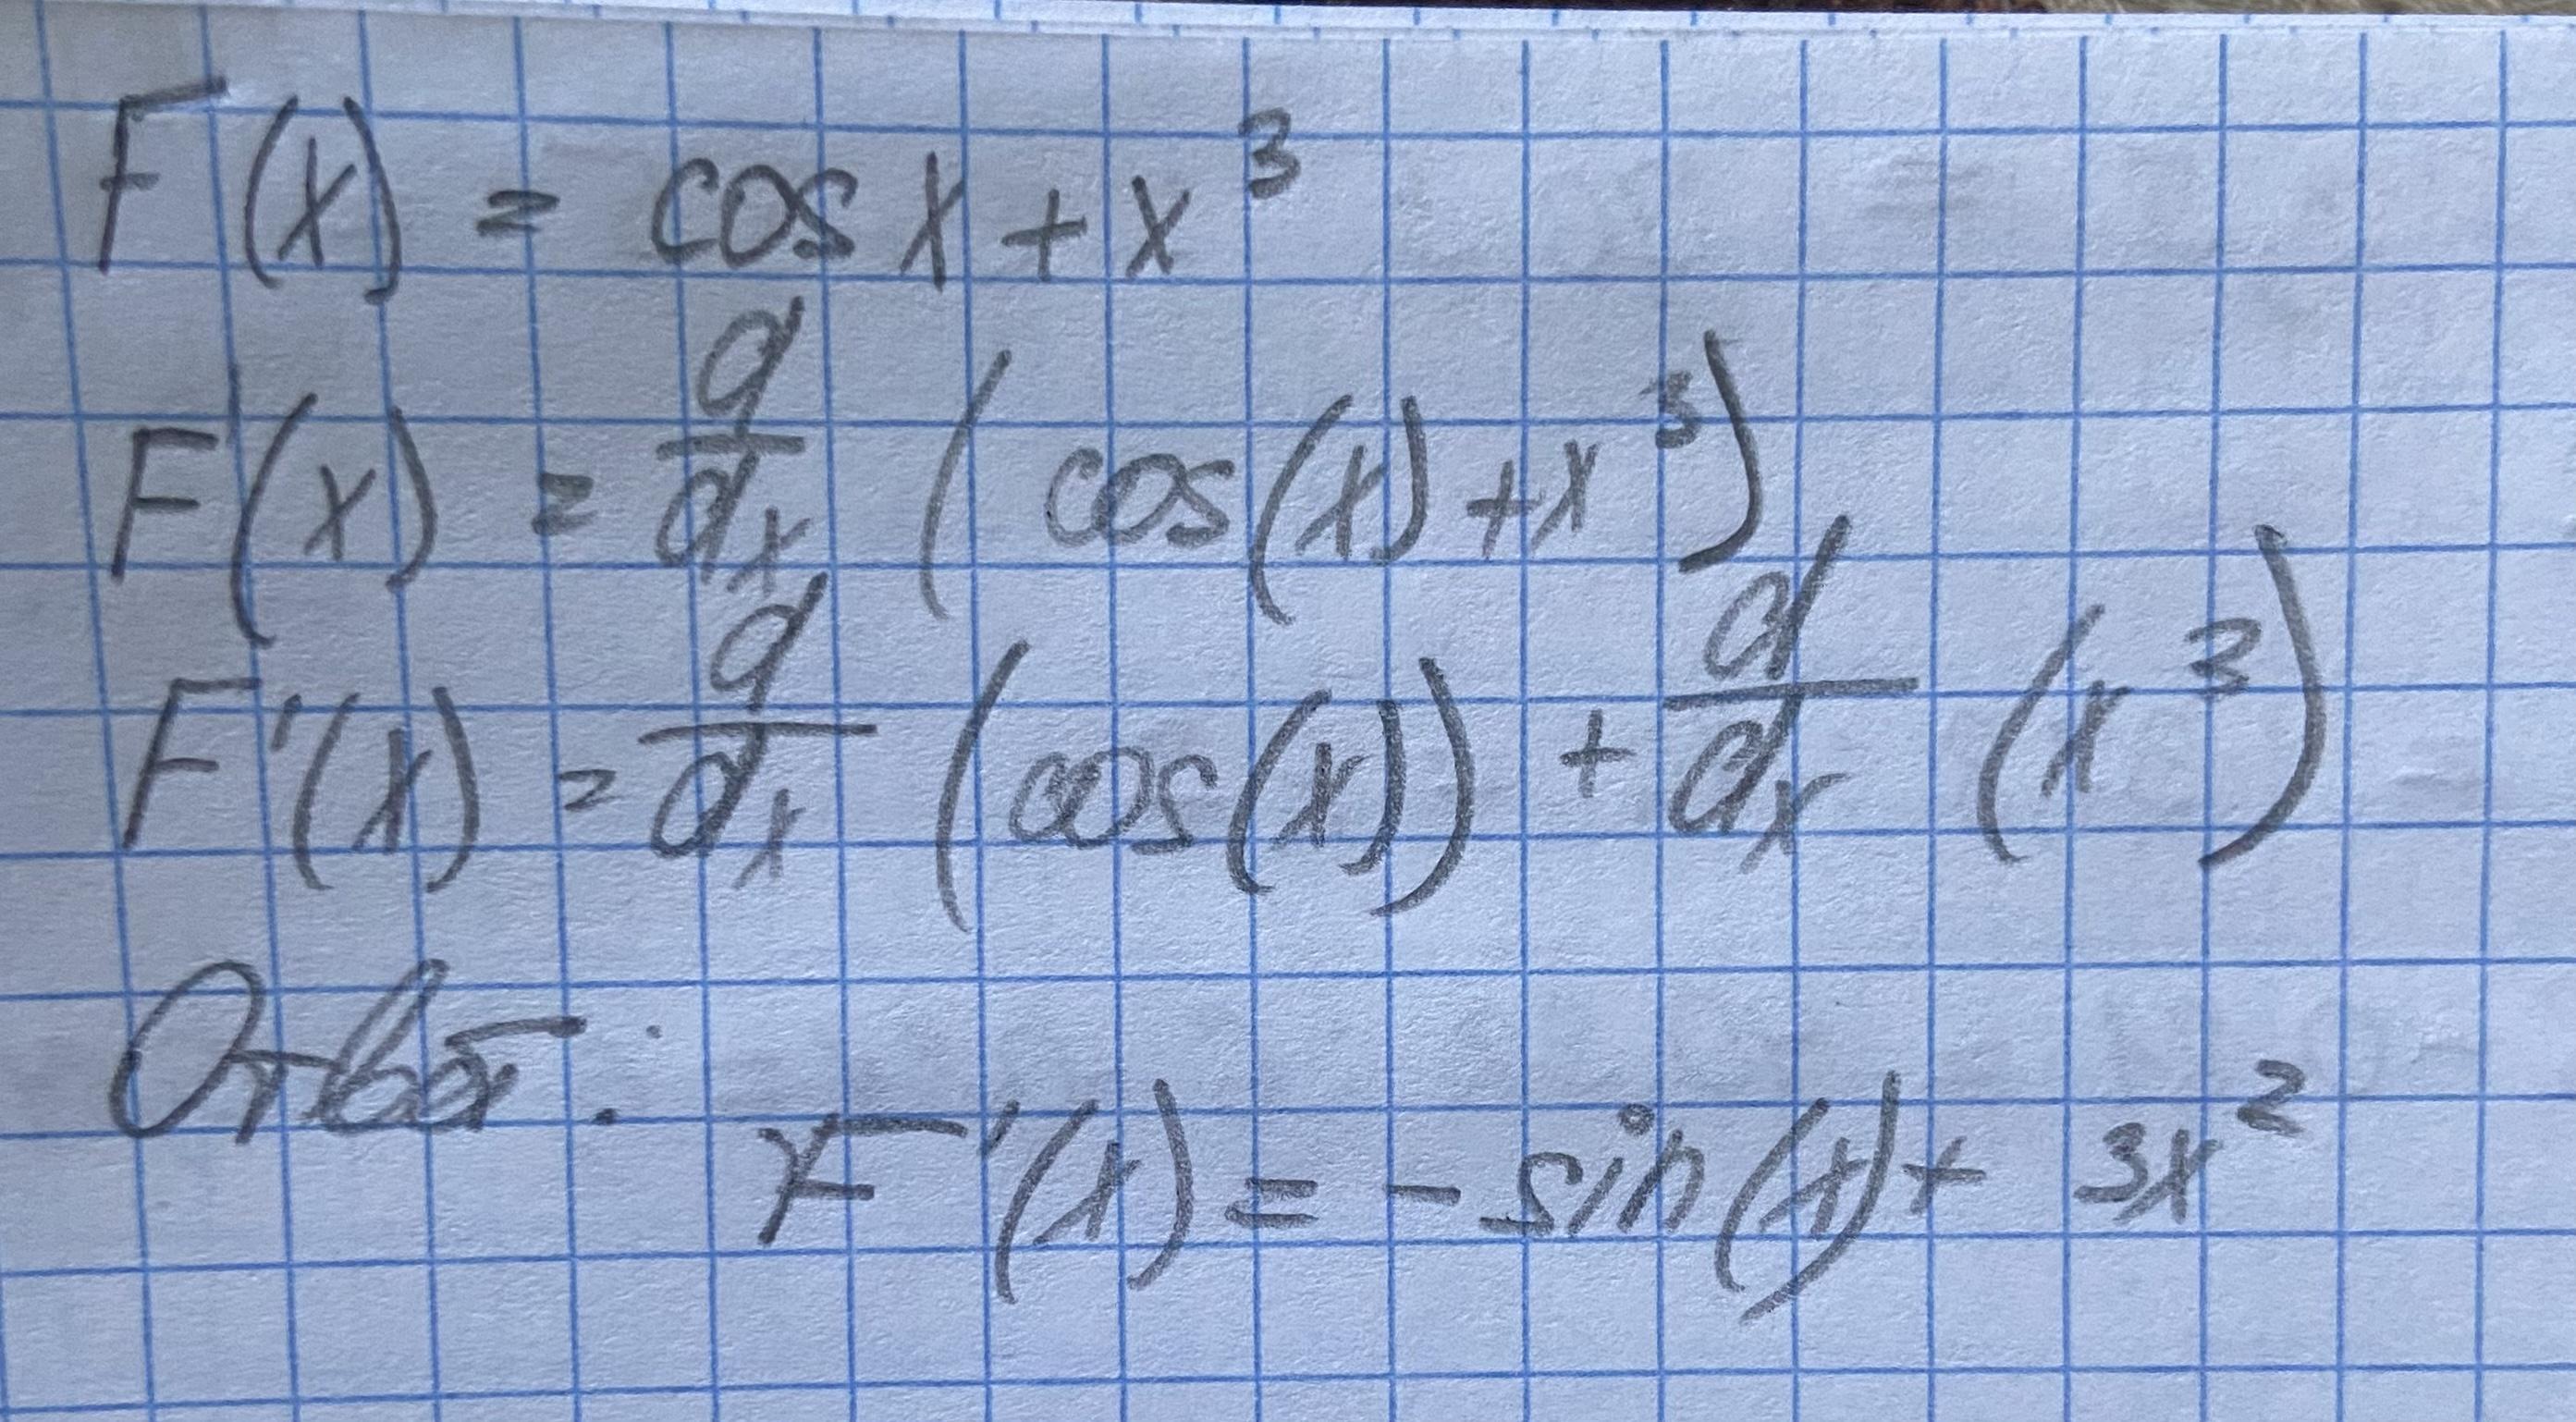 F(x) = cos x + x³
F'(x) = d/dx (cos(x) + x³)
F'(x) = d/dx (cos(x)) + d/dx (x³)
Ответ: F'(x) = - sin(x) + 3x²